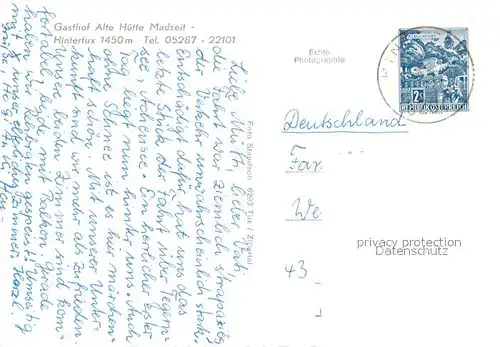 Gasthof Alte Hütte Madseit -
Hintertux 1450m Tel. 05287 - 22101
Echte
Photographie
REPUBLIK ÖSTERREICH
Foto Stupbach 6293 Tux / Zillertal
Liebe Mutti, lieber Vati,
die Fahrt war ziemlich strapaziös,
der Verkehr unwahrscheinlich stark.
Entschädigt dafür hat uns das
letzte Stück der Fahrt über Tegern-
see, Achensee. Ein herrlicher erster
Tag liegt nun hinter uns. Auch
ohne Schnee ist es hier märchen-
haft schön. Mit unserer Unter-
kunft sind wir mehr als zufrieden.
Unsere beiden Zimmer sind kom-
fortabel, beide mit Balkon. Gerade
haben wir gespeist.
Deutschland
Far
We
43
privacy protection
Datenschutz